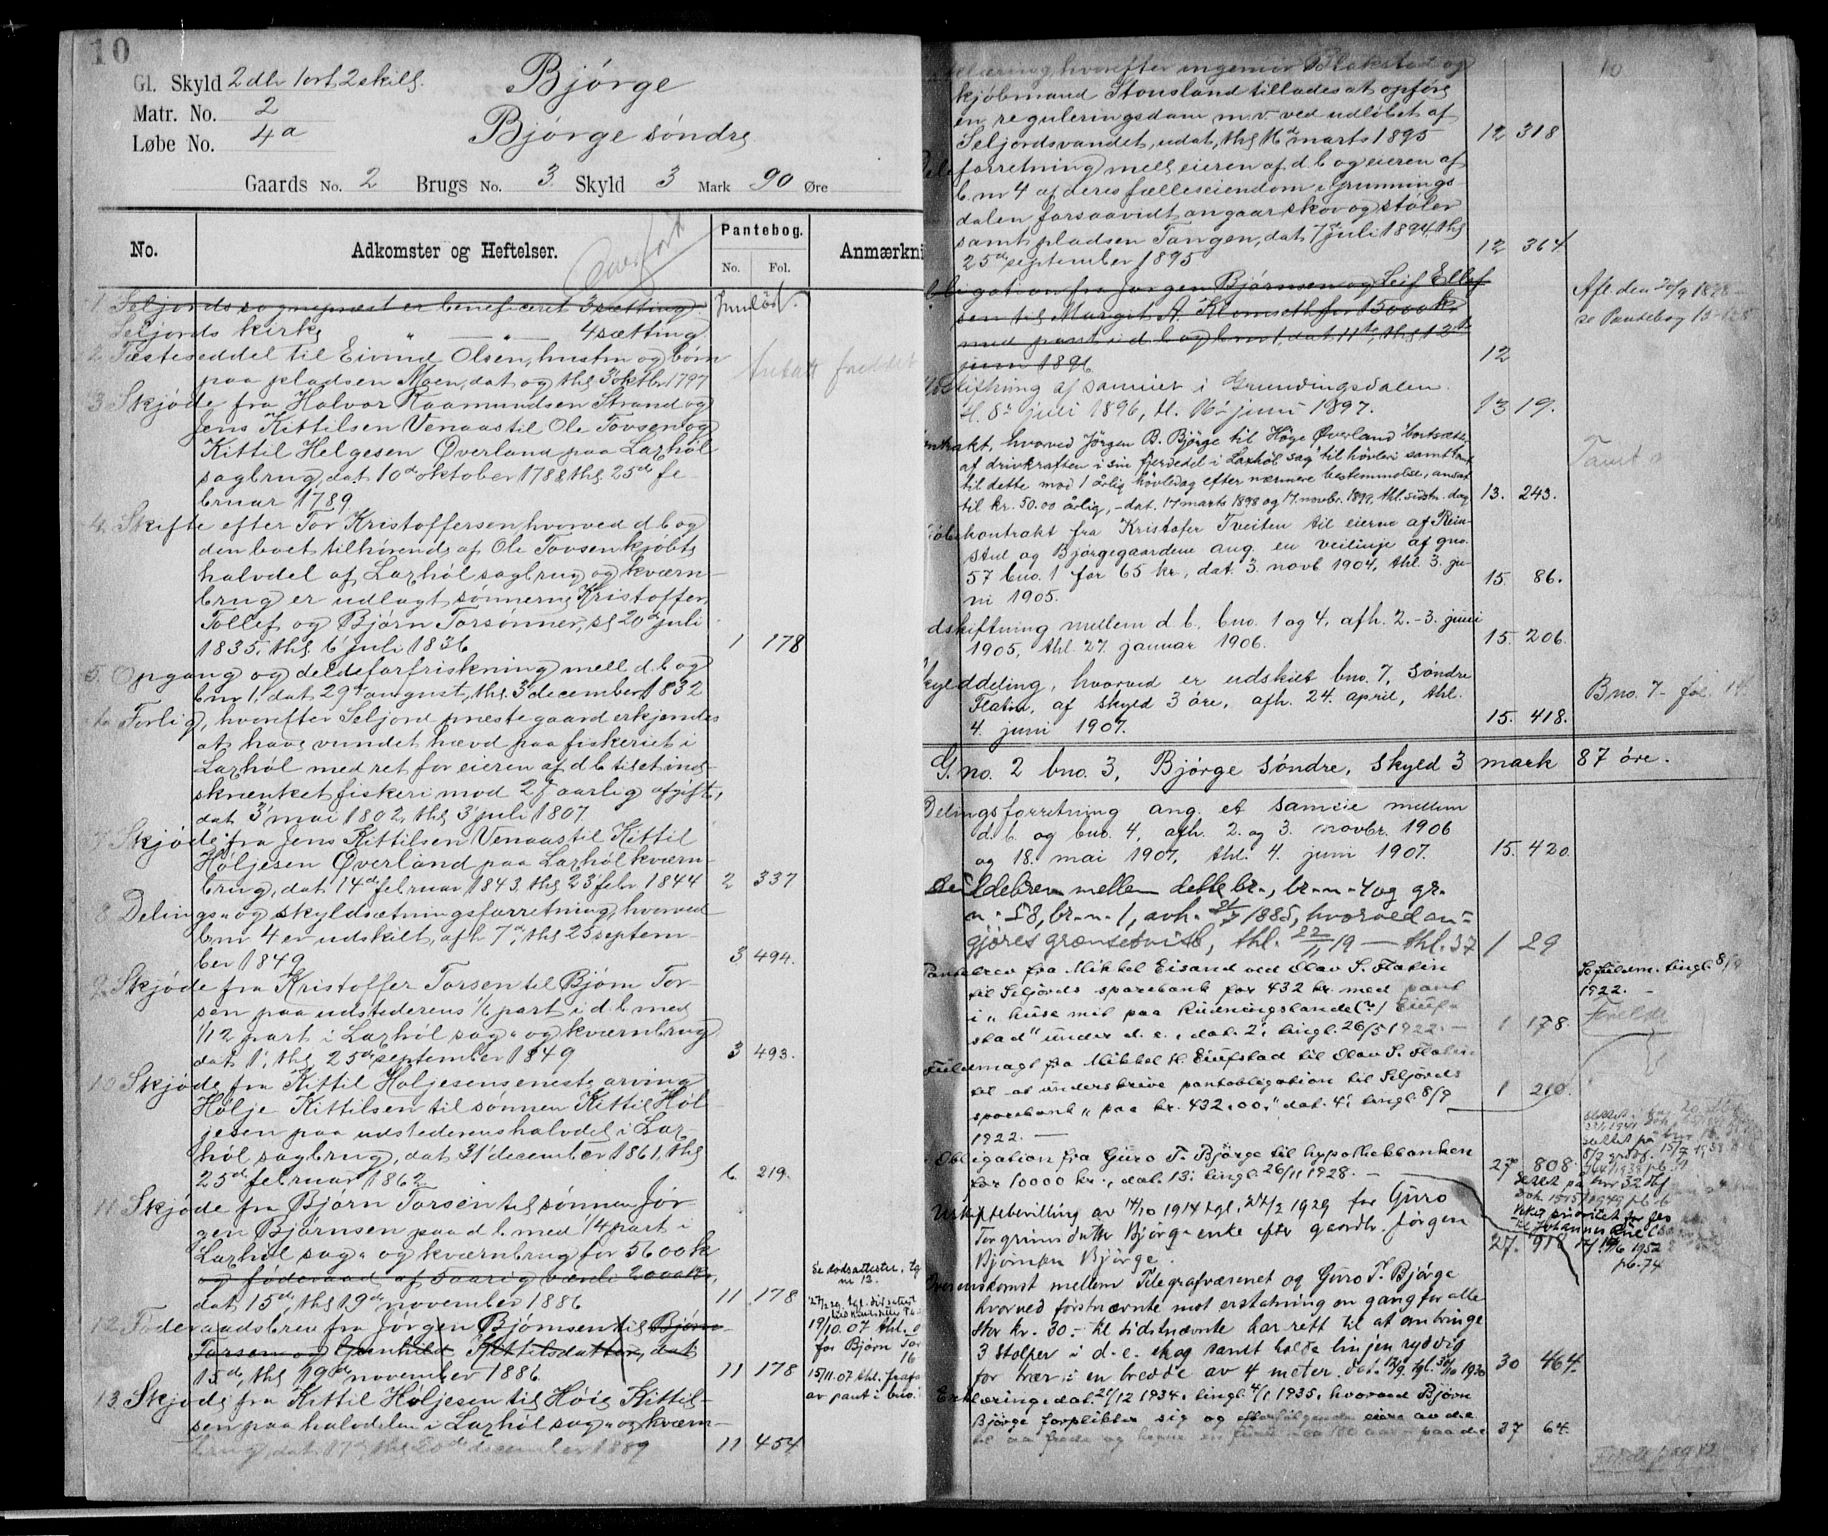 10
Gl. Skyld 2 dlr 1 ort 2 skill.
Matr. No. 2
Løbe No. 4a
Bjørge
Bjørge søndre
Gaards No. 2 Brugs No. 3. Skyld 3 Mark 90 Øre
No.
Adkomster og Heftelser.
Pantebog.
No. Fol.
Anmærkni
Overført
1 Seljords sognepræst er beneficeret 3 sætting Innløst.
Seljords kirke " — " — 4 sætting
2. Fæsteseddel til Eivind Olsen, hustru og børn
paa pladsen Moen, dat og thl 3' oktbr 1797
3 Skjøde fra Halvor Raamundsen Strand og
Jens Kittilsen Venaas til Ole Tovsen og
Kittil Helgesen Øverland paa Laxhøl
sagbrug, dat 10de oktober 1788 thl 25de fe-
bruar 1789
4. Skifte efter Tor Kristoffersen, hvorved d.b. og
den boet tilhørende af Ole Tovsen kjøbte
halvdel af Laxhøl sagbrug og kværn-
brug er udlagt sønnerne Kristoffer,
Tollef og Bjørn Torsønner, sl 20de juli
1835, thl 6' juli 1836 1 178
5. Opgang og deldeforfriskning mell d.b. og
bnr 1, dat 29de august, thl 3' december 1832
6 Forlig, hvorefter Seljord præstegaard erkjendes
at have vundet hævd paa fiskeriet i
Laxhøl med ret for eieren af d b til et ind-
skrænket fiskeri mod aarlig afgift,
dat 3' mai 1802, thl 3' juli 1807
7 Skjøde fra Jens Kittilsen Venaas til Kittil
Høljesen Øverland paa Laxhøl kværn-
brug, dat 14de februar 1843, thl 23' febr 1844 2 337
8 Delings- og skyldsætningsforretning, hvorved
bnr 4 er udskilt, afh 7de, thl 25 septem-
ber 1849 3 494.
9. Skjøde fra Kristoffer Torsen til Bjørn Tor-
sen paa udstederens 1/6 part i d.b. med
1/12 part i Laxhøl sag- og kværnbrug
dat 1', thl 25de september 1849 3 493.
10 Skjøde fra Kittil Høljesens eneste arving
Hølje Kittilsen til sønnen Kittil Høl-
jesen paa udstederens halvdel i Lax-
høl sagbrug, dat 31' december 1861, thl
25de februar 1862 6. 219.
11 Skjøde fra Bjørn Torsen til sønnen Jør-
gen Bjørnsen paa d.b. med 1/4 part i
Laxhøl sag- og kværnbrug for 5600 kr
og føderaad af 5 aarig værdi 2000 kr,
dat 15de, thl 19de november 1886 11 178
Se dødsattester, tg
nr 12.
12 Føderaadsbrev fra Jørgen Bjørnsen til Bjørn
Torsen og Gunhild Kittilsdatter, dat
15de, thl 19de november 1886 11 178
19/10.07 thl.
for Bjørn Tor
16
15/11.07 thl.
av pant i bno.
13 Skjøde fra Kittil Høljesen til Høie Kittil-
sen paa halvdelen i Laxhøl sag- og kværn-
brug, dat 17de, thl 20de december 1889 11 454
10
hvorefter ingeniør Blakstad og
kjøbmand Stousland tillades at opføre
en reguleringsdam m.v. ved udløbet af
Seljordsvandet, udat, thl 16de marts 1895 12 318
forretning mell eieren af d.b. og eieren af
b.nr 4 af deres fælleseiendom i Grunnings-
dalen forsaavidt angaar skov og støler
samt pladsen Tangen, dat 7de juli 1894, thl
25de september 1895 12 364
Obligation fra Jørgen Bjørnsen og Leif Ellef-
sen til Margit A. Klomseth for 15000 kr
med pant i d.b. og bnr 1, dat 11te, thl 12te
juni 1896 12
Afl. den 20/9 1898
se Pantebog 13
Udskiftning af sameiet i Grundingsdalen.
sl. 8de juli 1896, thl. 16de juni 1897. 13 19.
Kontrakt, hvorved Jørgen B. Bjørge til Høge Øverland bortsætter
af drivkraften i sin fjerdedel i Laxhøl sag til høvleri samt
til dette mod 1 årlig høvledag efter nærmere bestemmelse, ansat
til kr. 50.00 årlig, – dat. 17 marts 1898 og 17. novbr. 1899, thl. sidstn. dag 13. 243.
Købekontrakt fra Kristofer Tveiten til eierne af Rein-
stul og Bjørgegaardene ang. en veilinje af gno.
57 bno. 1 for 65 kr., dat. 3. novb 1904, thl. 3. ju-
ni 1905. 15 86.
Udskiftning mellem d. b. bno. 1 og 4, afh. 2.-3. juni
1905, thl. 27. januar 1906. 15 206.
Skylddeling, hvorved er udskilt bno. 7, Søndre
Flatin, af skyld 3 øre, afh. 24. april, thl.
4. juni 1907. 15. 418.
Bno. 7 - fol.
G. no. 2 bno. 3, Bjørge søndre, skyld 3 mark 87 øre.
Delingsforretning ang. et sameie mellem
d. b. og bno. 4, afh. 2. og 3. novbr. 1906
og 18. mai 1907, thl. 4. juni 1907. 15. 420.
Deildebrev mellem dette br., br.-n.-4 og gr.
n.- 58, br.-n.-1, avh. 1885, hvorved an-
gjøres grænsetvist, thl. 22/11 19 — thl. 37 1 29
Pantebrev fra Mikkel Eisand ved Olav S. Flatin
til Seljords sparebank for 432 kr. med pant
i "huse mit paa Rudningslande(?) Eiuf-
stad" under d. e., dat. 2', tingl. 26/5 1922. — 1 178.
Se fuldm. tingl. 8/9
1922. —
Fuldmagt fra Mikkel H. Eiufstad til Olav S. Flatin
til at underskrive pantobligation til Seljords
sparebank "paa kr. 432.00," dat. 4', tingl. 8/9
1922. — 1 210.
Obligation fra Guro T. Bjørge til hypothekbanken
for 10000 kr., dat. 13', tingl. 26/11 1928. — 27 808.
Uskiftebevilling av 14/10 1914 tgl. 27/2 1929 for Guro
Torgrimsdatter Bjørge enke efter gaardbr. Jørgen
Bjørnsen Bjørge. 27. 918
Overenskomst mellem Telegrafvæsenet og Guro T. Bjørge
hvorved førstnævnte mot erstatning en gang for alle
stor kr. 30.- til sidstnævnte har rett til at anbringe
3 stolper i d. e. skog samt holde linjen ryddig
for trær i en bredde av 4 meter. dat. 12/9, tgl. 1930 30 464.
Erklæring dat. 27/12 1934, tingl. 4/1 1935, hvorved Bjørn
Bjørge forplikter sig og efterfølgende eiere av d.e.
til aa frede og hegne en furu paa d.e. 37 64.